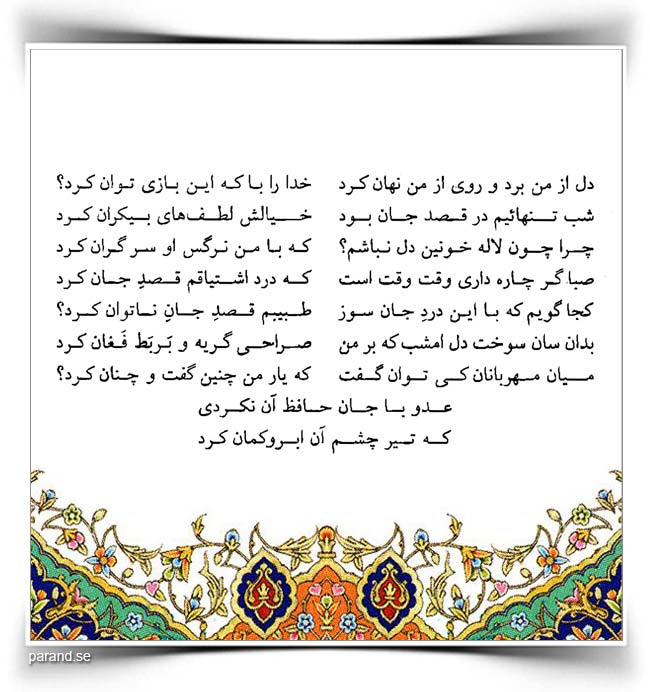 دل از من برد و روی از من نهان کرد خدا را با که این بازی توان کرد؟
شب تنهائیم در قصد جان بود خیالش لطف‌های بیکران کرد
چرا چون لاله خونین دل نباشم؟ که با من نرگس او سر گران کرد
صبا گر چاره داری وقت وقت است که درد اشتیاقم قصدِ جان کرد
کجا گویم که با این دردِ جان سوز طبیبم قصدِ جانِ ناتوان کرد؟
بدان سان سوخت دل امشب که بر من صراحی گریه و بَربَط فَغان کرد
میان مهربانان کی توان گفت که یار من چنین گفت و چنان کرد؟
عدو با جان حافظ آن نکردی
که تیر چشم آن ابروکمان کرد
parand.se